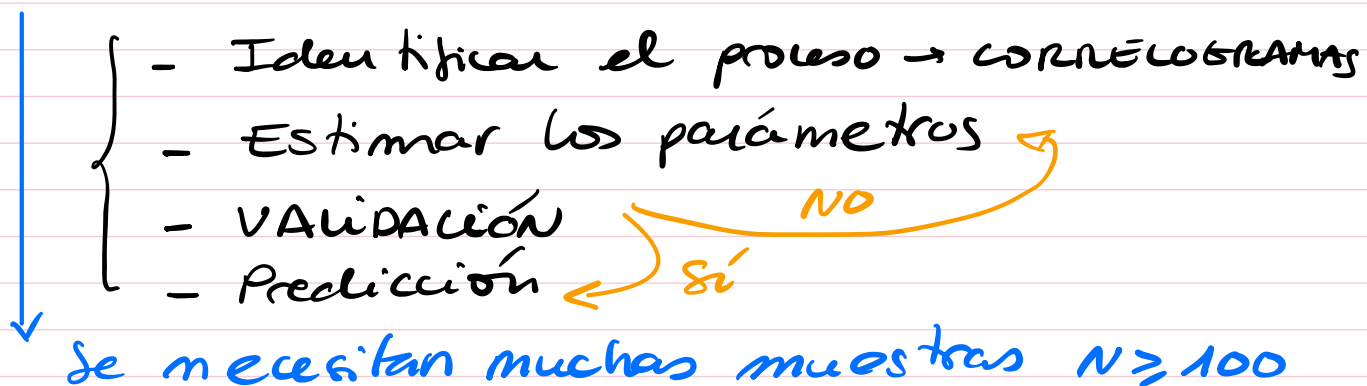 - Identificar el proceso → CORRELOGRAMAS
- Estimar los parámetros
NO
- VALIDACIÓN
SÍ
- Predicción
Se necesitan muchas muestras N ≥ 100